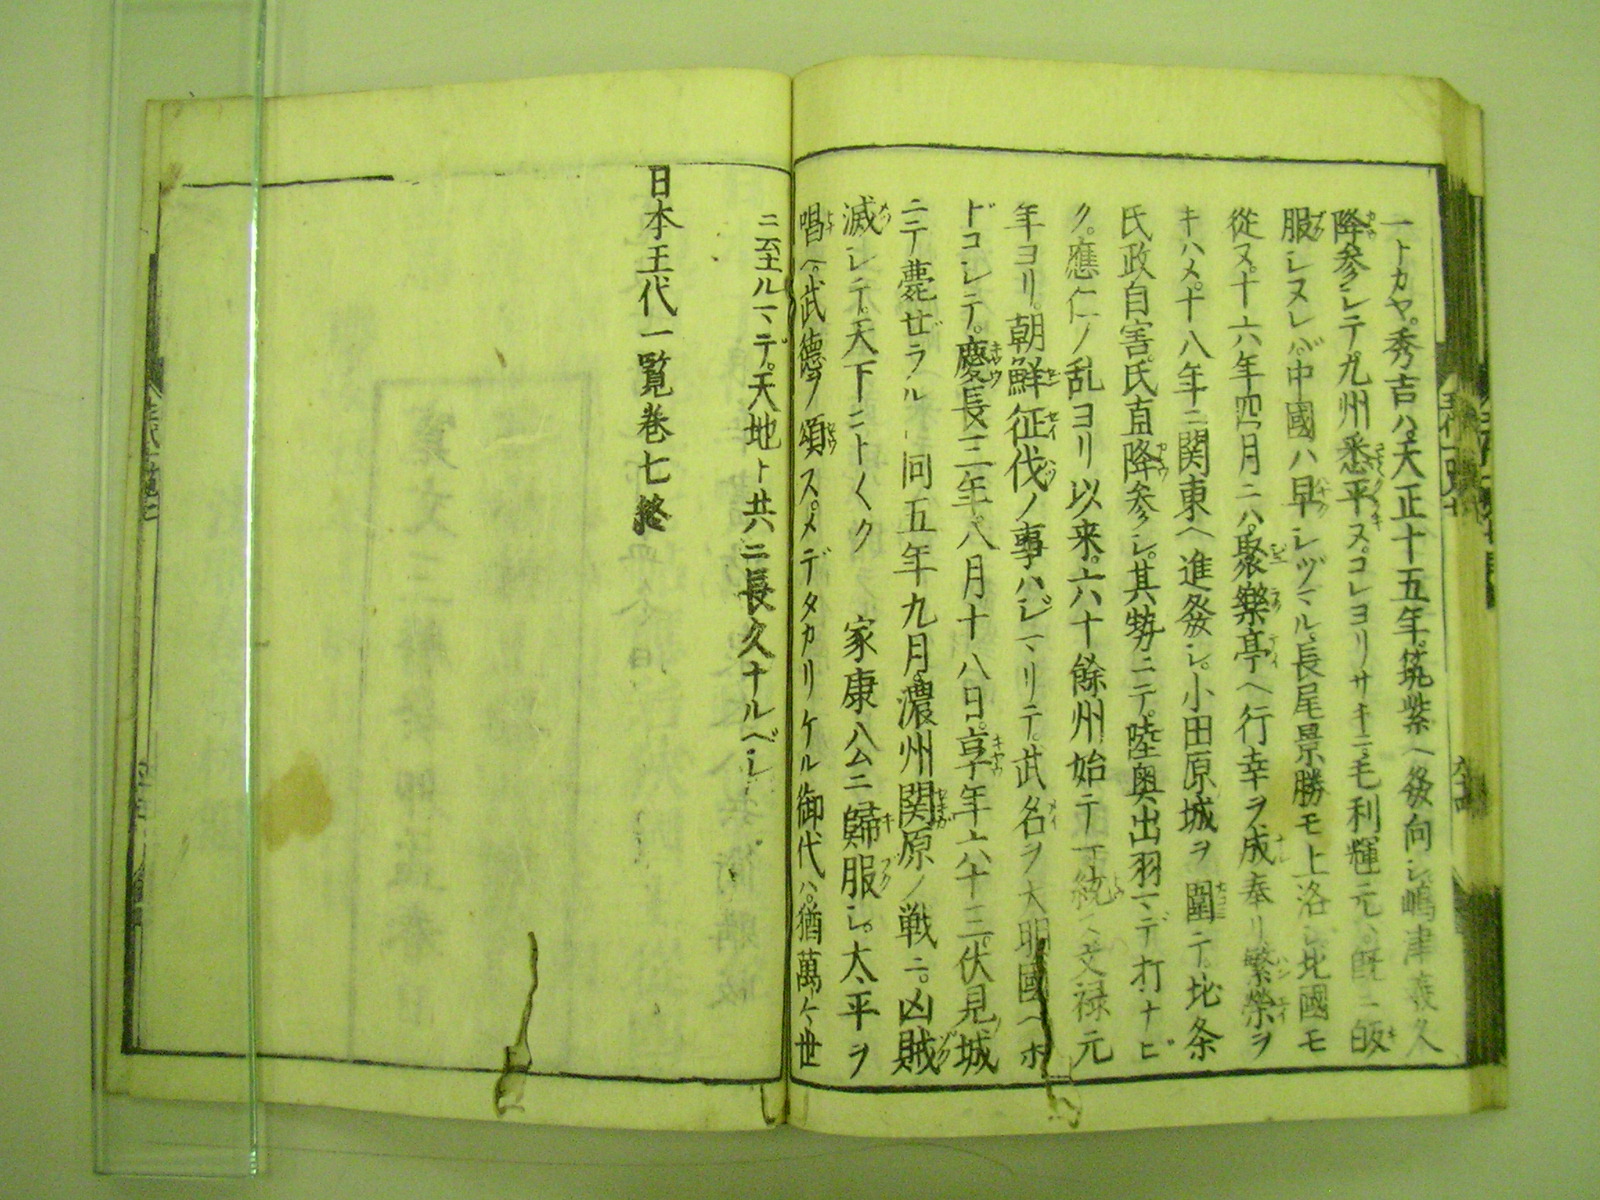 一トカヤ。秀吉ハ天正十五年。筑紫ヘ發向シ嶋津義久
降参シテ九州悉平ヌ。コレヨリサキニ毛利輝元ハ。既ニ皈
服シヌレバ。中國ハ早シヅマル。長尾景勝モ上洛シ。北國モ
從ヌ。十六年四月ニハ。聚樂亭ヘ行幸ヲ成奉リ繁榮ヲ
キハメ。十八年ニ関東ヘ進發シ。小田原城ヲ圍テ。北条
氏政自害。氏直降参シ。其勢ニテ。陸奥出羽マデ打ナビ
ク。應仁ノ乱ヨリ以来。六十餘州始テ一統ス文禄元
年ヨリ。朝鮮征伐ノ事ハジマリテ。武名ヲ大明國ヘホ
ドコシテ。慶長三年。八月十八日。享年六十三。伏見城
ニテ薨ゼラル 同五年九月。濃州関原ノ戦ニ。凶賊
滅シテ。天下コト〱ク 家康公ニ歸服シ。太平ヲ
唱ヘ。武德ノ頌スヽメデタカリケル御代ハ。猶萬々世
ニ至ルマデ。天地ト共ニ長久ナルベシ
日本王代一覧巻七終